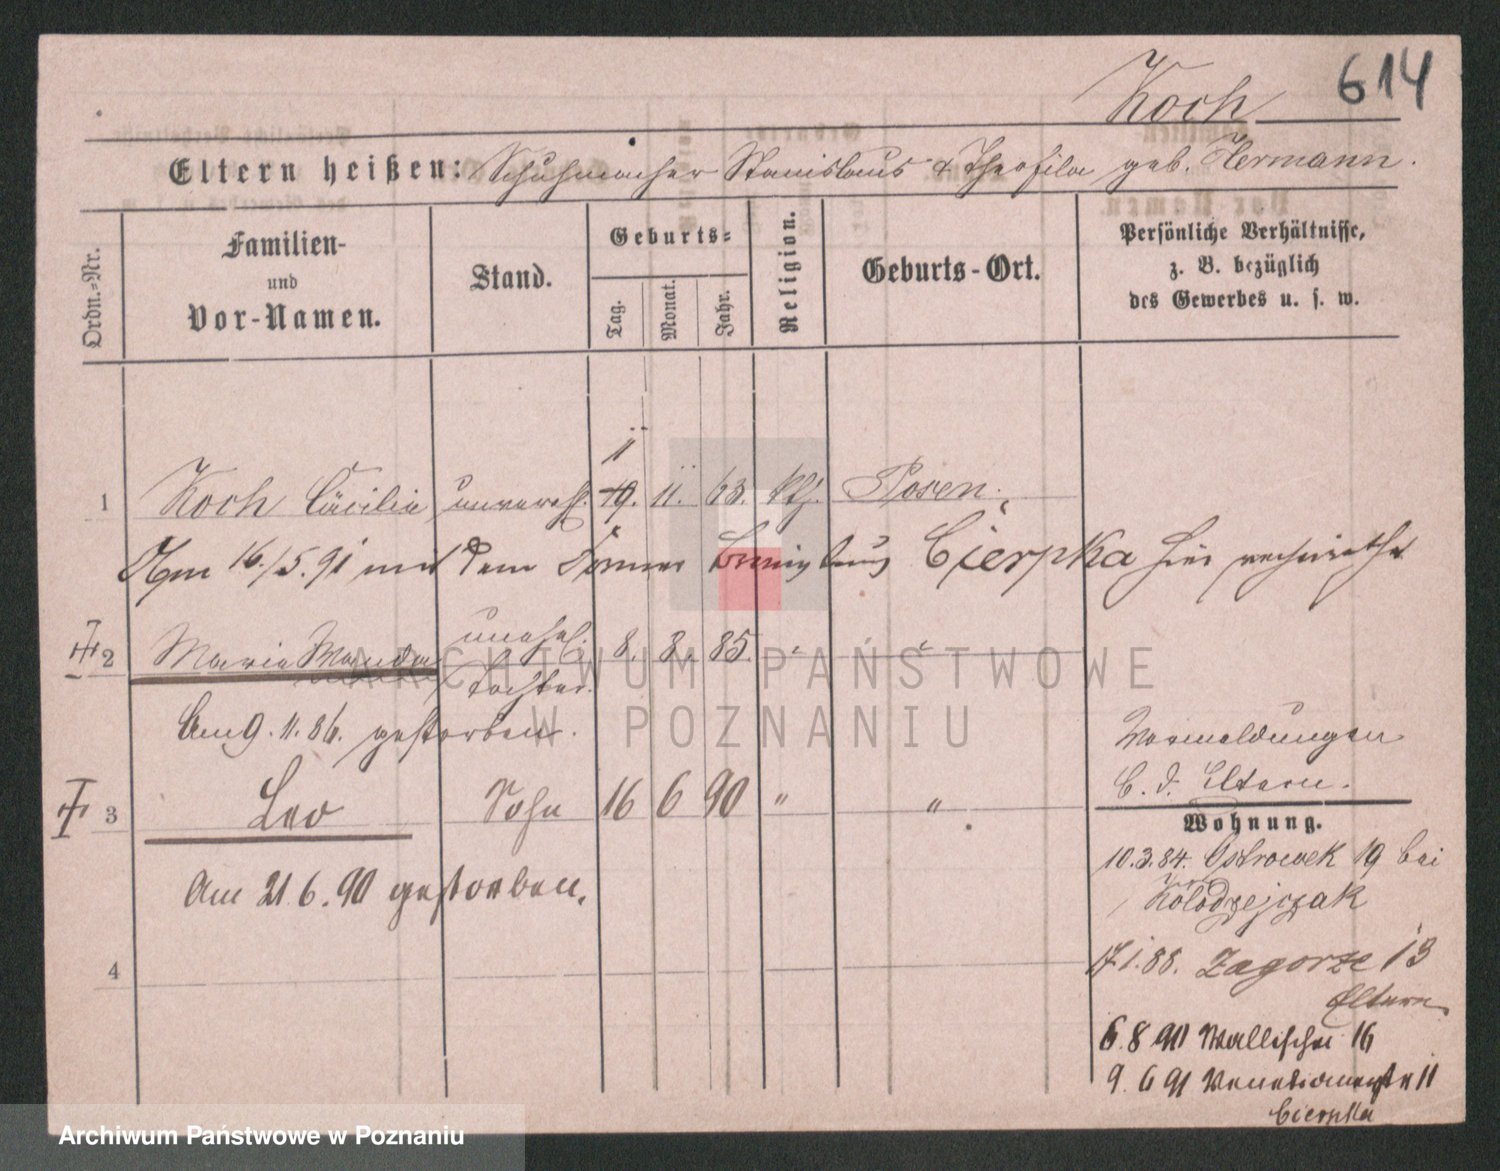 614
Koch
Eltern heißen: Schuhmacher Stanislaus & Theofila geb. Hermann.
Ordn.-Nr.
Familien-
und
Vor-Namen.
Stand.
Geburts-
Tag.
Monat.
Jahr.
Religion.
Geburts-Ort.
Persönliche Verhältnisse,
z. B. bezüglich
des Gewerbes u. s. w.
11
1 Koch Cäcilie unverehl. 19. 11. 63. kth. Posen.
Am 16./5.91 mit dem Cierpka hier verheirathet
2 Maria Wanda unehel. Tochter. 8. 8. 85. " "
Am 9.11.86. gestorben.
3 Leo Sohn 16 6 90 " "
Am 21.6.90 gestorben.
4
Vormeldungen
b. d. Eltern.
Wohnung.
10.3.84. Ostrowek 19 bei
Kolodzejczak
17.1.88. Zagorze 13
Eltern
6.8.90 Wallischei 16
9.6.91 Venetianerstr 11
Cierpka
ARCHIWUM PAŃSTWOWE
W POZNANIU
Archiwum Państwowe w Poznaniu